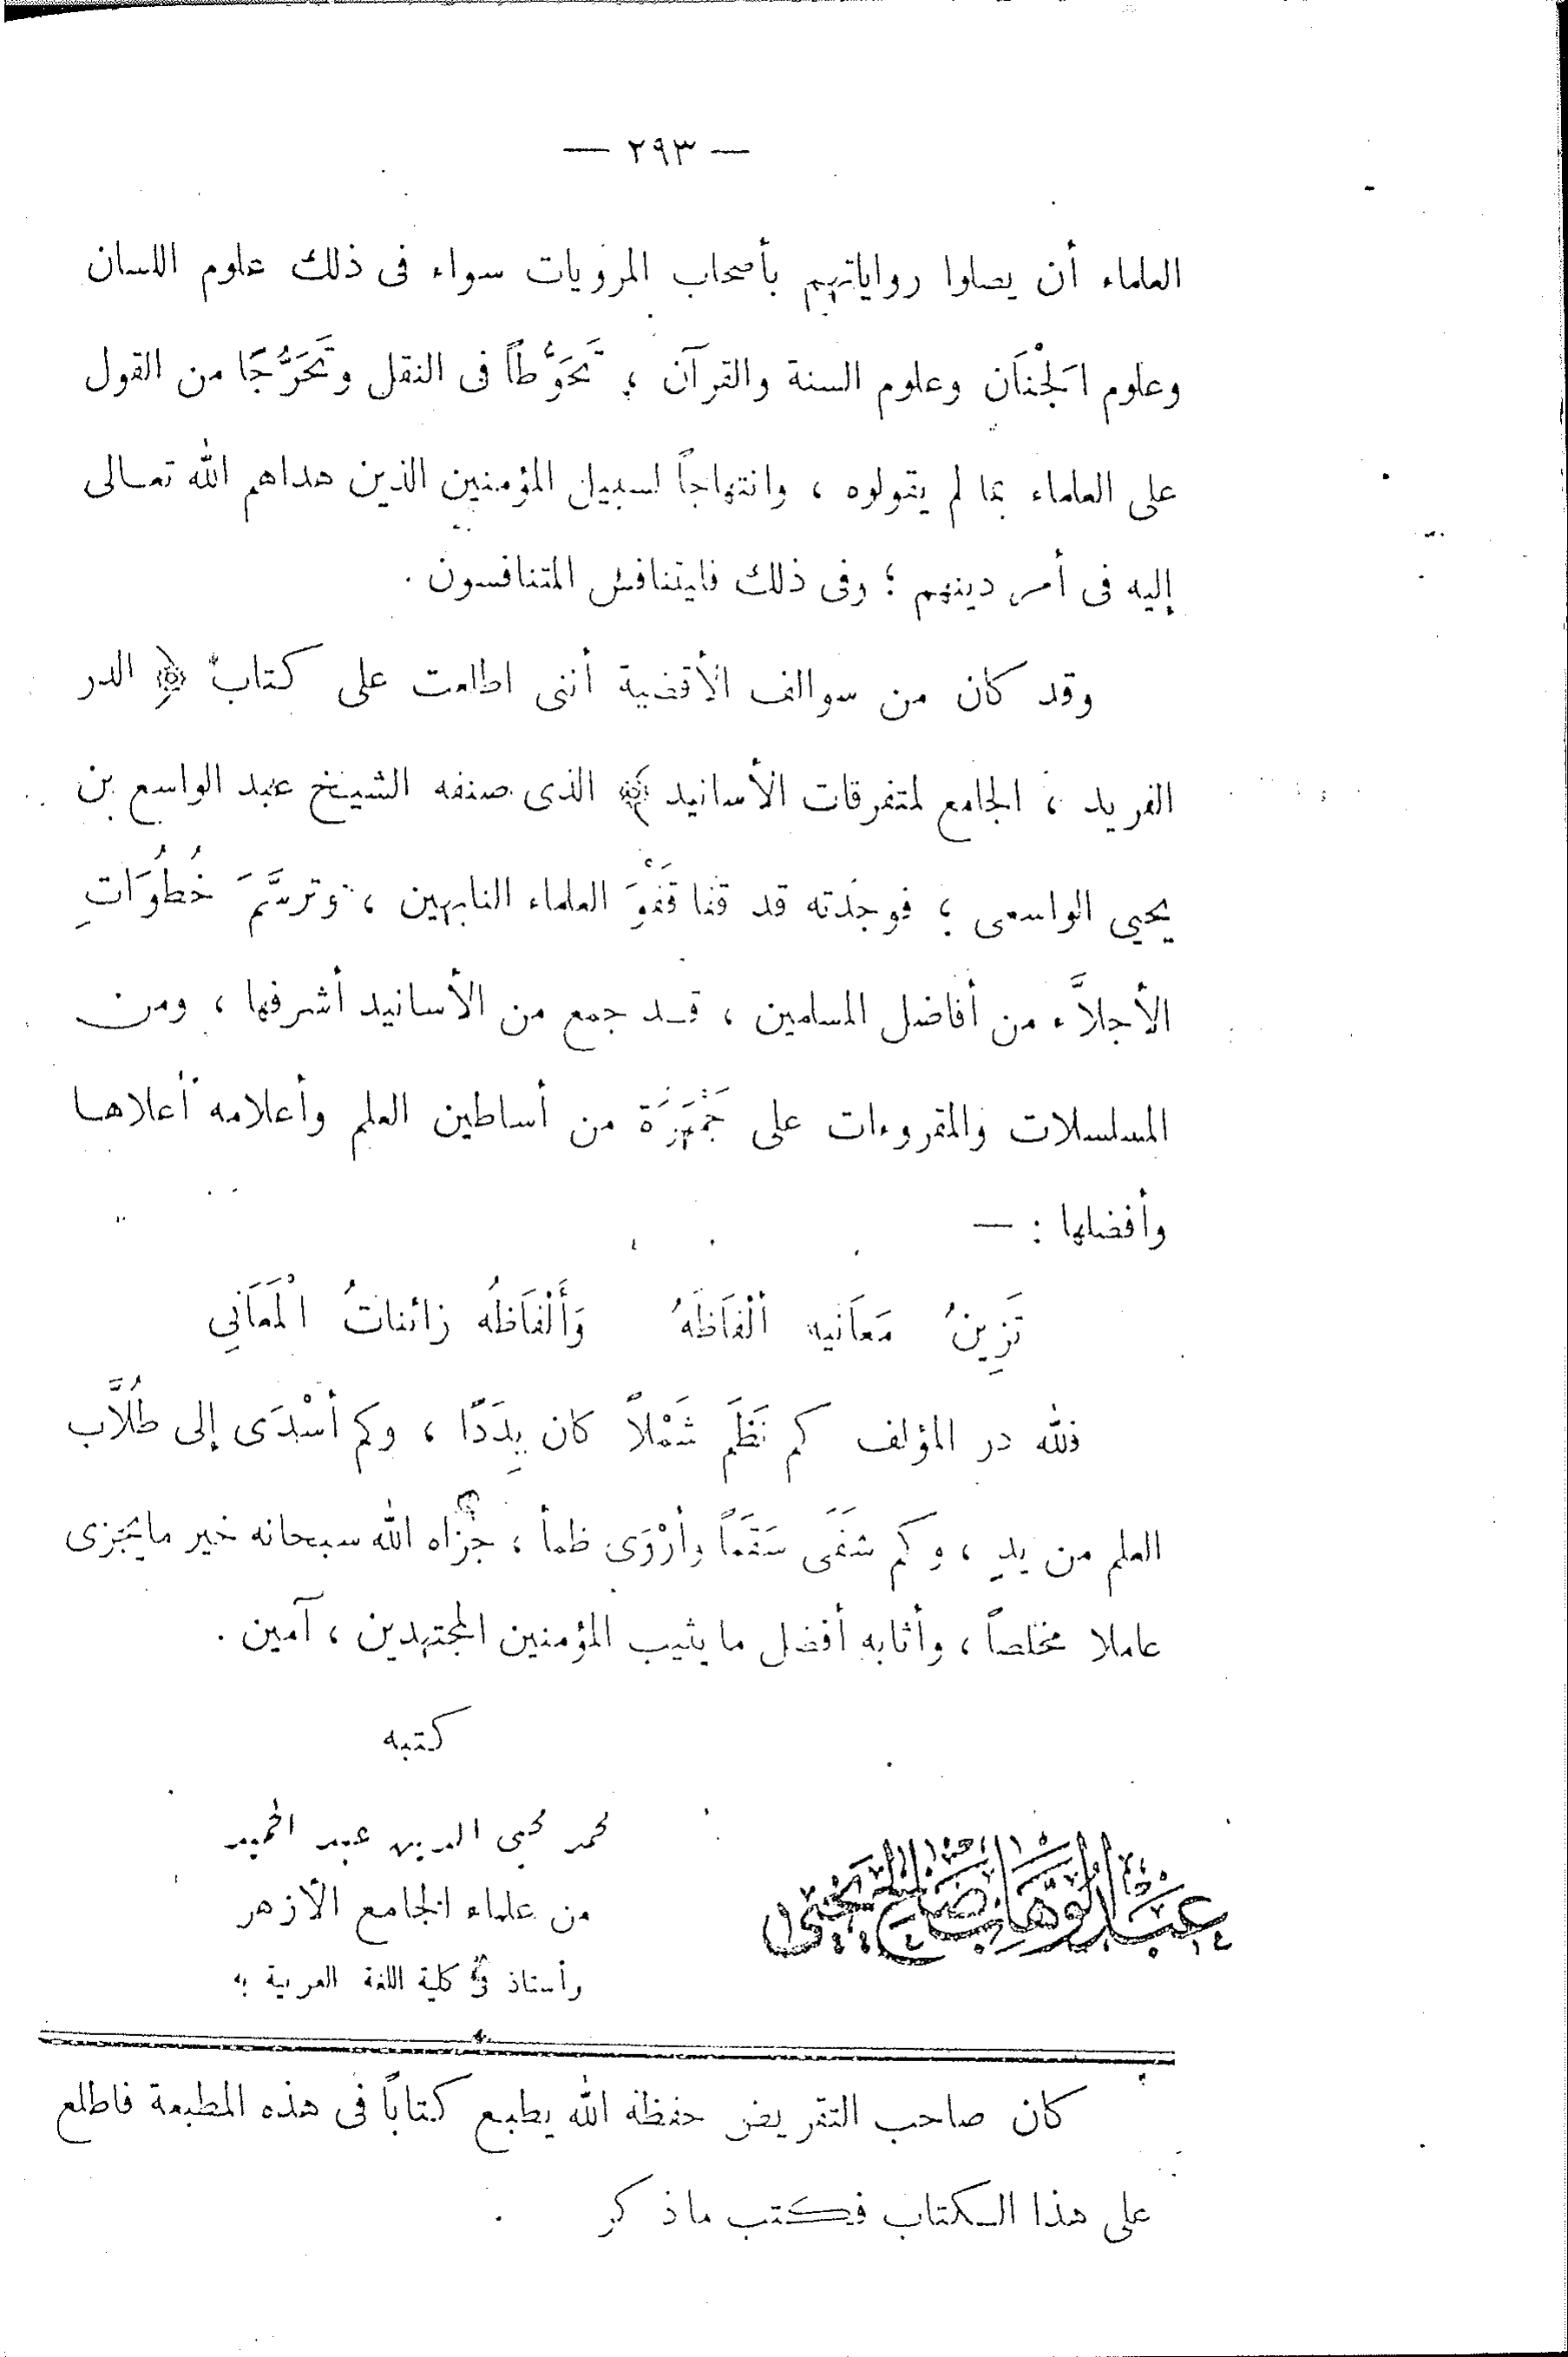 — ٢٩٣ —
العلماء أن يصلوا رواياتهم بأصحاب المرويات سواء فى ذلك علوم اللسان
وعلوم الجْنَان وعلوم السنة والقرآن ؛ تَحَوُّطاً فى النقل وتَحَرُّجًا من القول
على العلماء بما لم يقولوه ، وانتهاجاً لسبيل المؤمنين الذين هداهم الله تعالى
إليه فى أمر دينهم ؛ وفى ذلك فليتنافس المتنافسون .
وقد كان من سوالف الأقضية أننى اطلعت على كتاب ﴿ الدر
الفريد ، الجامع لمتفرقات الأسانيد ﴾ الذى صنفه الشيخ عبد الواسع بن
يحيى الواسعى ؛ فوجدته قد قفا قَفْوَ العلماء النابهين ، وترسَّمَ خُطُوَاتِ
الأجلاَّء من أفاضل المسلمين ، قد جمع من الأسانيد أشرفها ، ومن
المسلسلات والمقروءات على جَمْهَرَة من أساطين العلم وأعلامه أعلاها
وأفضلها : —
تَزِينُ مَعَانيه ألْفَاظَهُ وَأَلْفَاظُه زائناتُ الْمَعَانِي
فلله در المؤلف كم نَظَمَ شَمْلاً كان بِدَدًا ، وكم أسْدَى إلى طُلاَّب
العلم من يدٍ ، وكم شفَى سَقَماً وأرْوَى ظمأ ، جزاه الله سبحانه خير مايجزى
عاملا مخلصاً ، وأثابه أفضل ما يثيب المؤمنين المجتهدين ، آمين .
كتبه
محمد محيى الدين عبد الحميد
من علماء الجامع الأزهر
وأستاذ في كلية اللغة العربية به
كان صاحب التقريض حفظه الله يطبع كتاباً فى هذه المطبعة فاطلع
على هذا الكتاب فكتب ماذكر